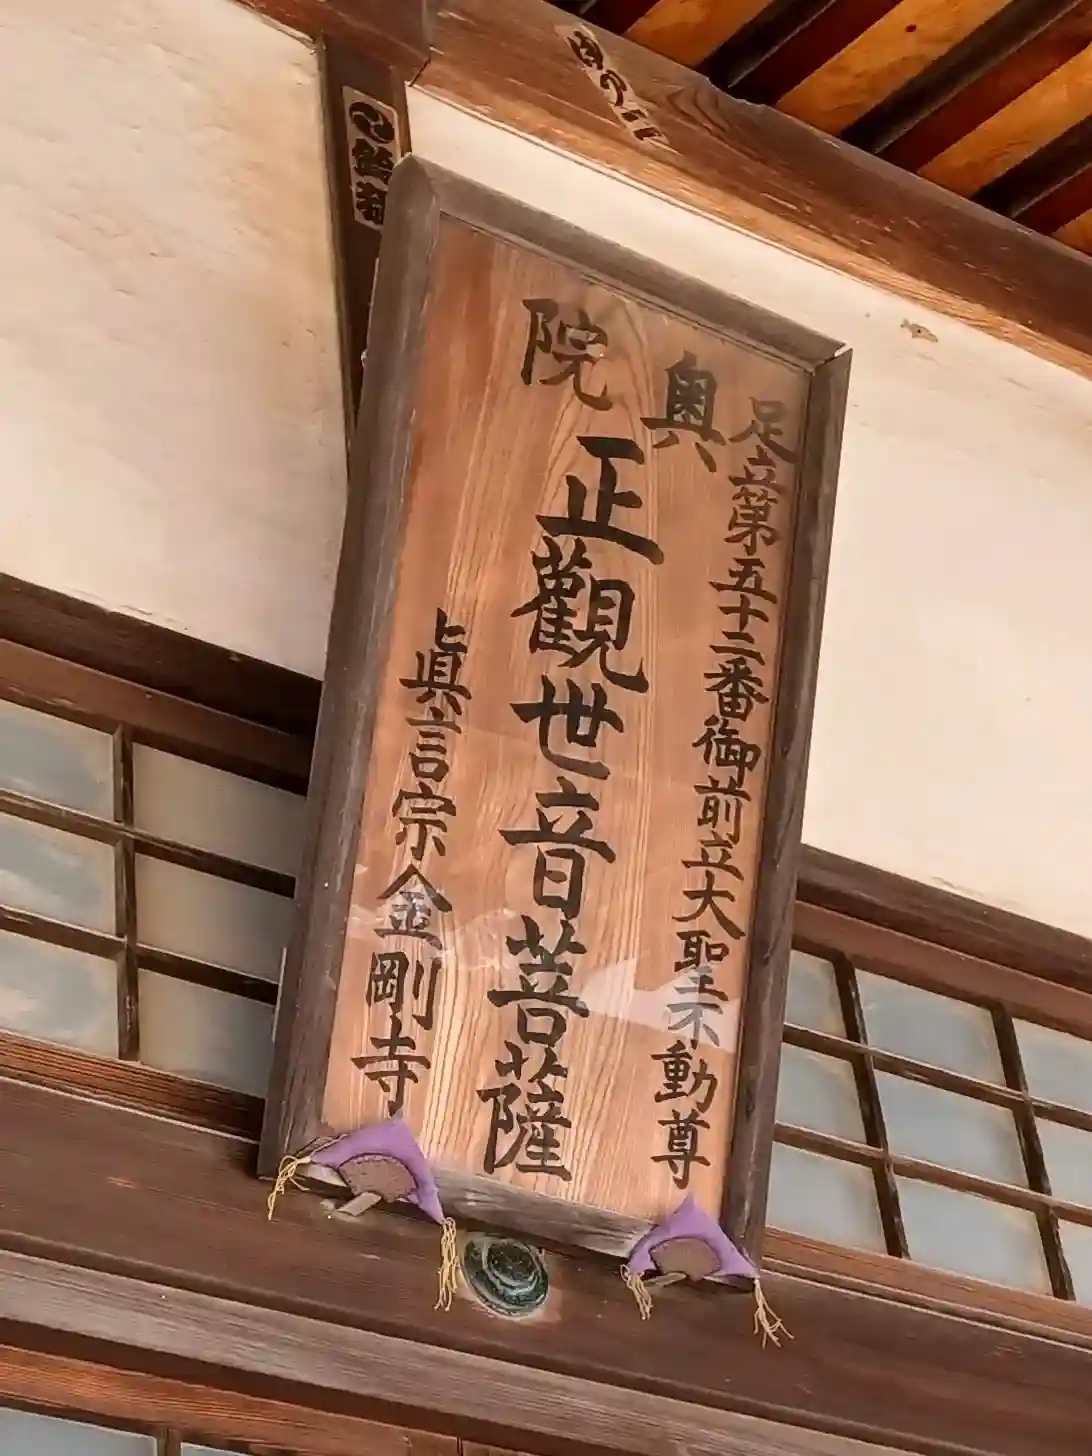 足立第五十二番御前立大聖不動尊
奥院
正觀世音菩薩
眞言宗金剛寺